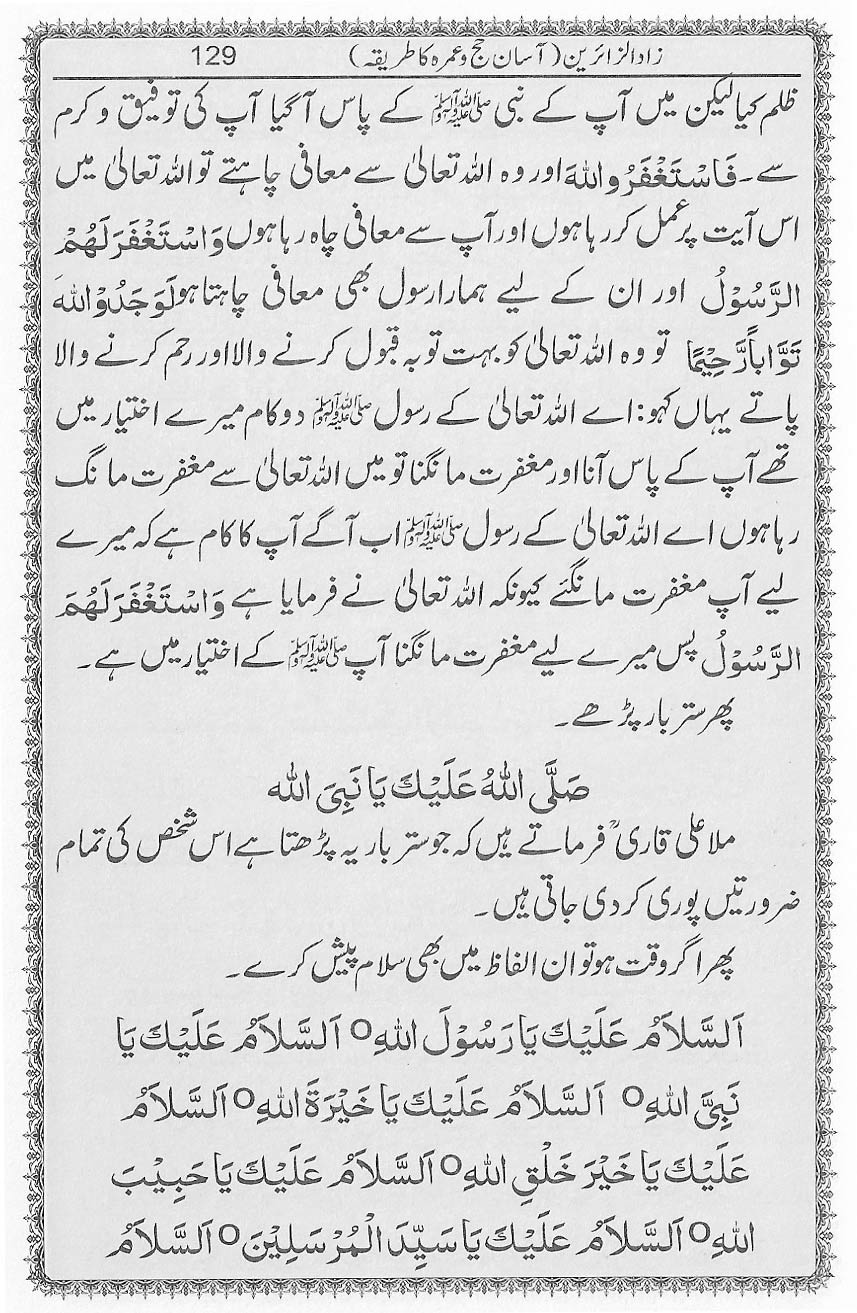 زاد الزائرین (آسان حج و عمرہ کا طریقہ) 129
ظلم کیا لیکن میں آپ کے نبی ﷺ کے پاس آگیا آپ کی توفیق و کرم
سے۔ فَاسْتَغْفَرُوا اللهَ اور وہ اللہ تعالیٰ سے معافی چاہتے تو اللہ تعالیٰ میں
اس آیت پر عمل کر رہا ہوں اور آپ سے معافی چاہ رہا ہوں وَاسْتَغْفَرَ لَهُمْ
الرَّسُوْلُ اور ان کے لیے ہمارا رسول بھی معافی چاہتا ہو لَوَجَدُوْا اللهَ
تَوَّاباً رَّحِيْمًا تو وہ اللہ تعالیٰ کو بہت توبہ قبول کرنے والا اور رحم کرنے والا
پاتے یہاں کہو: اے اللہ تعالیٰ کے رسول ﷺ دو کام میرے اختیار میں
تھے آپ کے پاس آنا اور مغفرت مانگنا تو میں اللہ تعالیٰ سے مغفرت مانگ
رہا ہوں اے اللہ تعالیٰ کے رسول ﷺ اب آگے آپ کا کام ہے کہ میرے
لیے آپ مغفرت مانگئے کیونکہ اللہ تعالیٰ نے فرمایا ہے وَاسْتَغْفَرَ لَهُمَ
الرَّسُوْلُ پس میرے لیے مغفرت مانگنا آپ ﷺ کے اختیار میں ہے۔
پھر ستر بار پڑھے۔
صَلَّى اللهُ عَلَيْكَ يَا نَبِيَ الله
ملا علی قاریؒ فرماتے ہیں کہ جو ستر بار یہ پڑھتا ہے اس شخص کی تمام
ضرورتیں پوری کر دی جاتی ہیں۔
پھر اگر وقت ہو تو ان الفاظ میں بھی سلام پیش کرے۔
اَلسَّلاَمُ عَلَيْكَ يَا رَسُوْلَ اللهِ o اَلسَّلاَمُ عَلَيْكَ يَا
نَبِيَّ اللهِ o اَلسَّلاَمُ عَلَيْكَ يَا خَيْرَةَ اللهِ o اَلسَّلاَمُ
عَلَيْكَ يَا خَيْرَ خَلْقِ اللهِ o اَلسَّلاَمُ عَلَيْكَ يَا حَبِيْبَ
اللهِ o اَلسَّلاَمُ عَلَيْكَ يَا سَيِّدَ الْمُرْسَلِيْنَ o اَلسَّلاَمُ